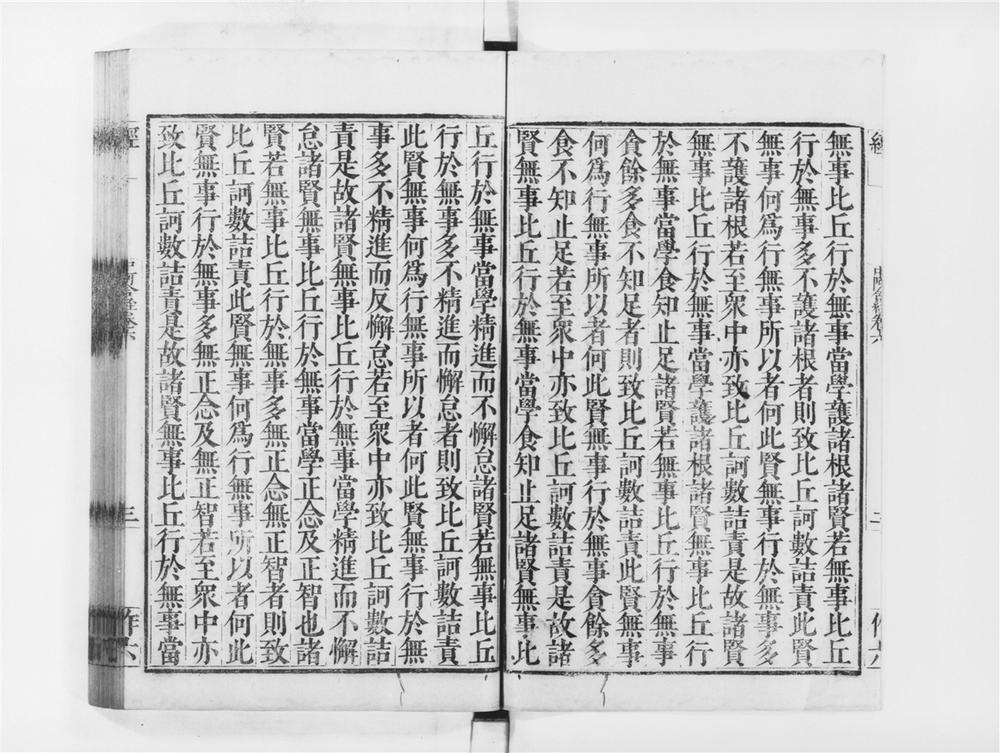 無事比丘行於無事當學護諸根諸賢若無事比丘
行於無事多不護諸根者則致比丘訶數詰責此賢
無事何爲行無事所以者何此賢無事行於無事多
不護諸根若至衆中亦致比丘訶數詰責是故諸賢
無事比丘行於無事當學護諸根諸賢無事比丘行
於無事當學食知止足諸賢若無事比丘行於無事
貪餘多食不知足者則致比丘訶數詰責此賢無事
何爲行無事所以者何此賢無事行於無事貪餘多
食不知止足若至衆中亦致比丘訶數詰責是故諸
賢無事比丘行於無事當學食知止足諸賢無事比
丘行於無事當學精進而不懈怠諸賢若無事比丘
行於無事多不精進而懈怠者則致比丘訶數詰責
此賢無事何爲行無事所以者何此賢無事行於無
事多不精進而反懈怠若至衆中亦致比丘訶數詰
責是故諸賢無事比丘行於無事當學精進而不懈
怠諸賢無事比丘行於無事當學正念及正智也諸
賢若無事比丘行於無事多無正念無正智者則致
比丘訶數詰責此賢無事何爲行無事所以者何此
賢無事行於無事多無正念及無正智若至衆中亦
致比丘訶數詰責是故諸賢無事比丘行於無事當
經 三